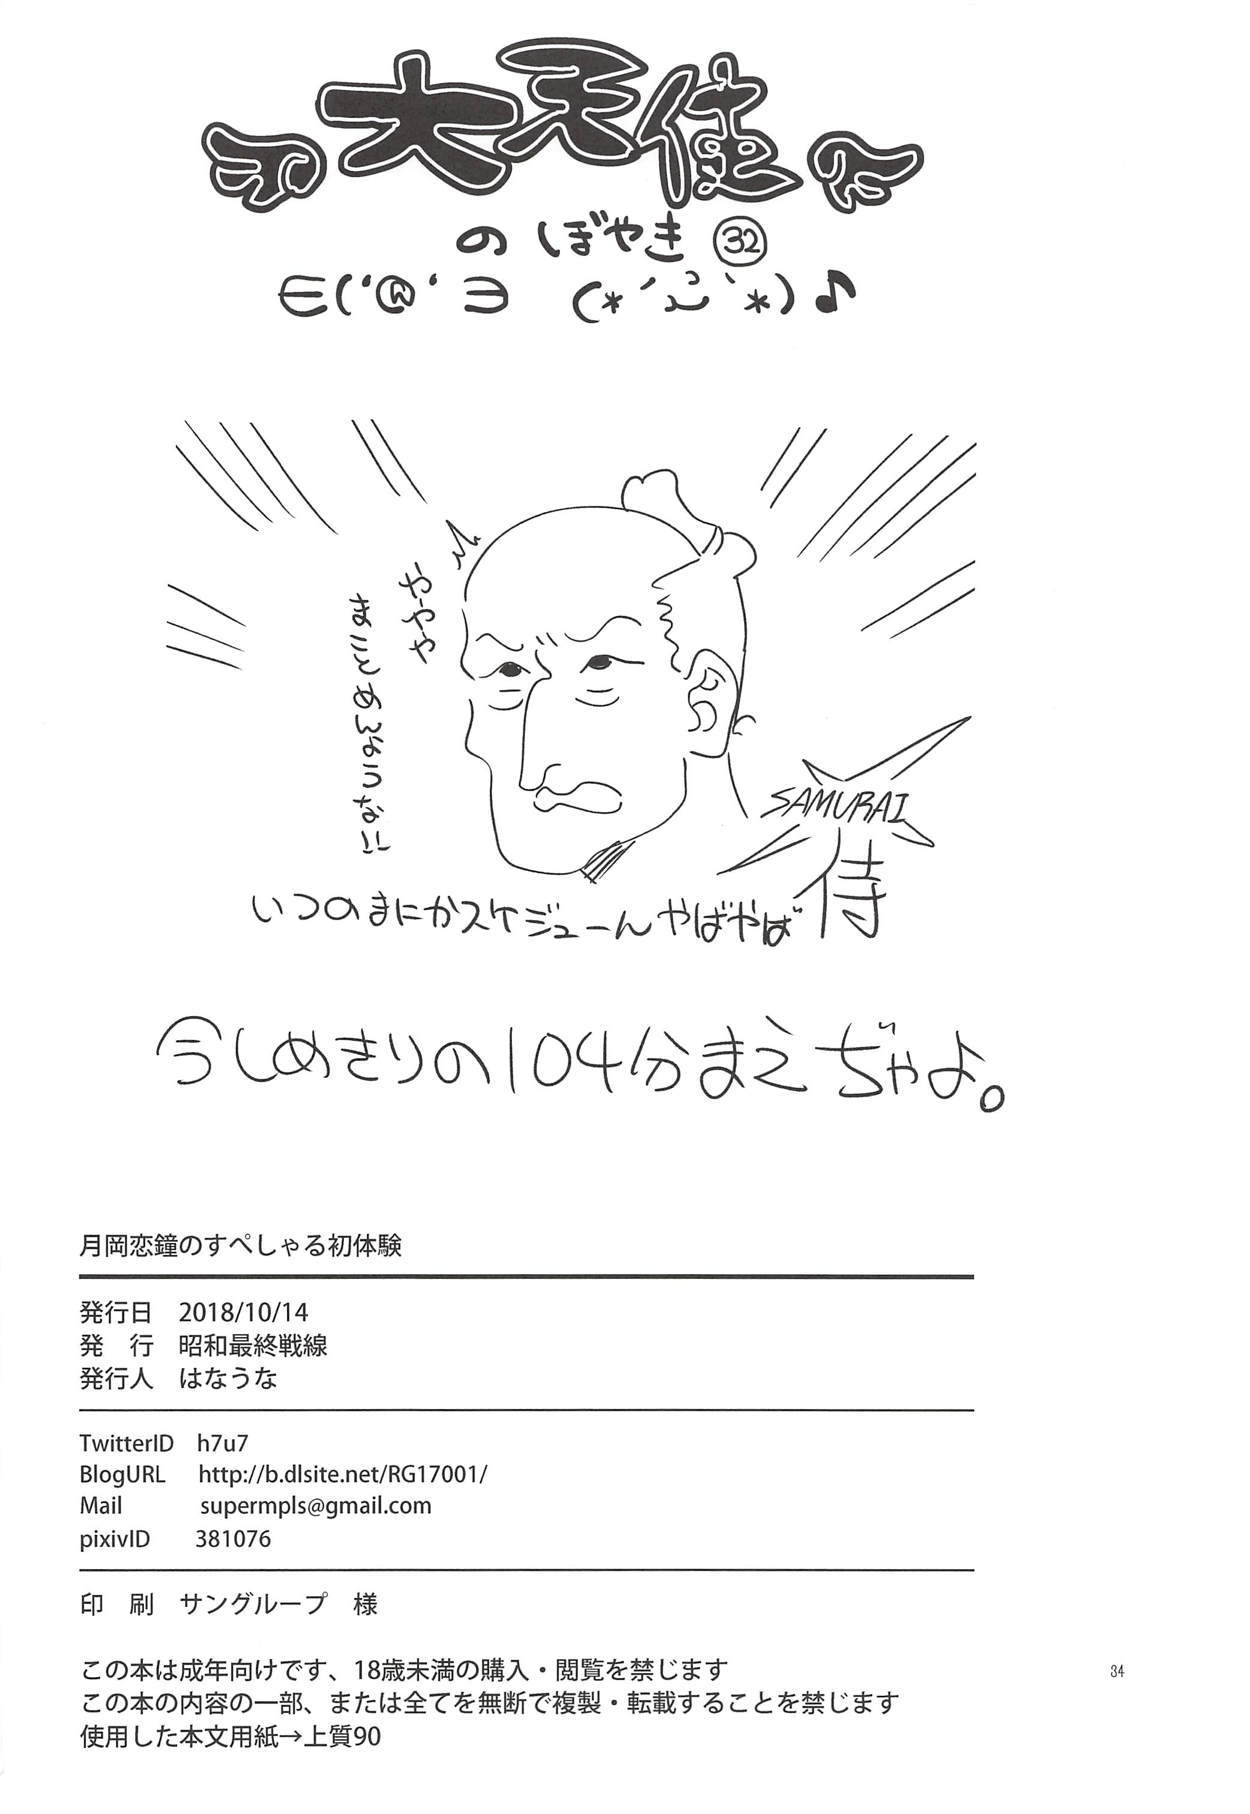 大天使
のぼやき㉜
∈('@'∋ (*´ `*)♪
ややや
まことめんような!!
SAMURAI
いつのまにかスケジューんやばやば侍
今しめきりの104分まえぢゃよ。
月岡恋鐘のすぺしゃる初体験
発行日 2018/10/14
発 行 昭和最終戦線
発行人 はなうな
TwitterID h7u7
BlogURL http://b.dlsite.net/RG17001/
Mail supermpls@gmail.com
pixivID 381076
印 刷 サングループ 様
この本は成年向けです、18歳未満の購入・閲覧を禁じます
この本の内容の一部、または全てを無断で複製・転載することを禁じます
使用した本文用紙→上質90
34